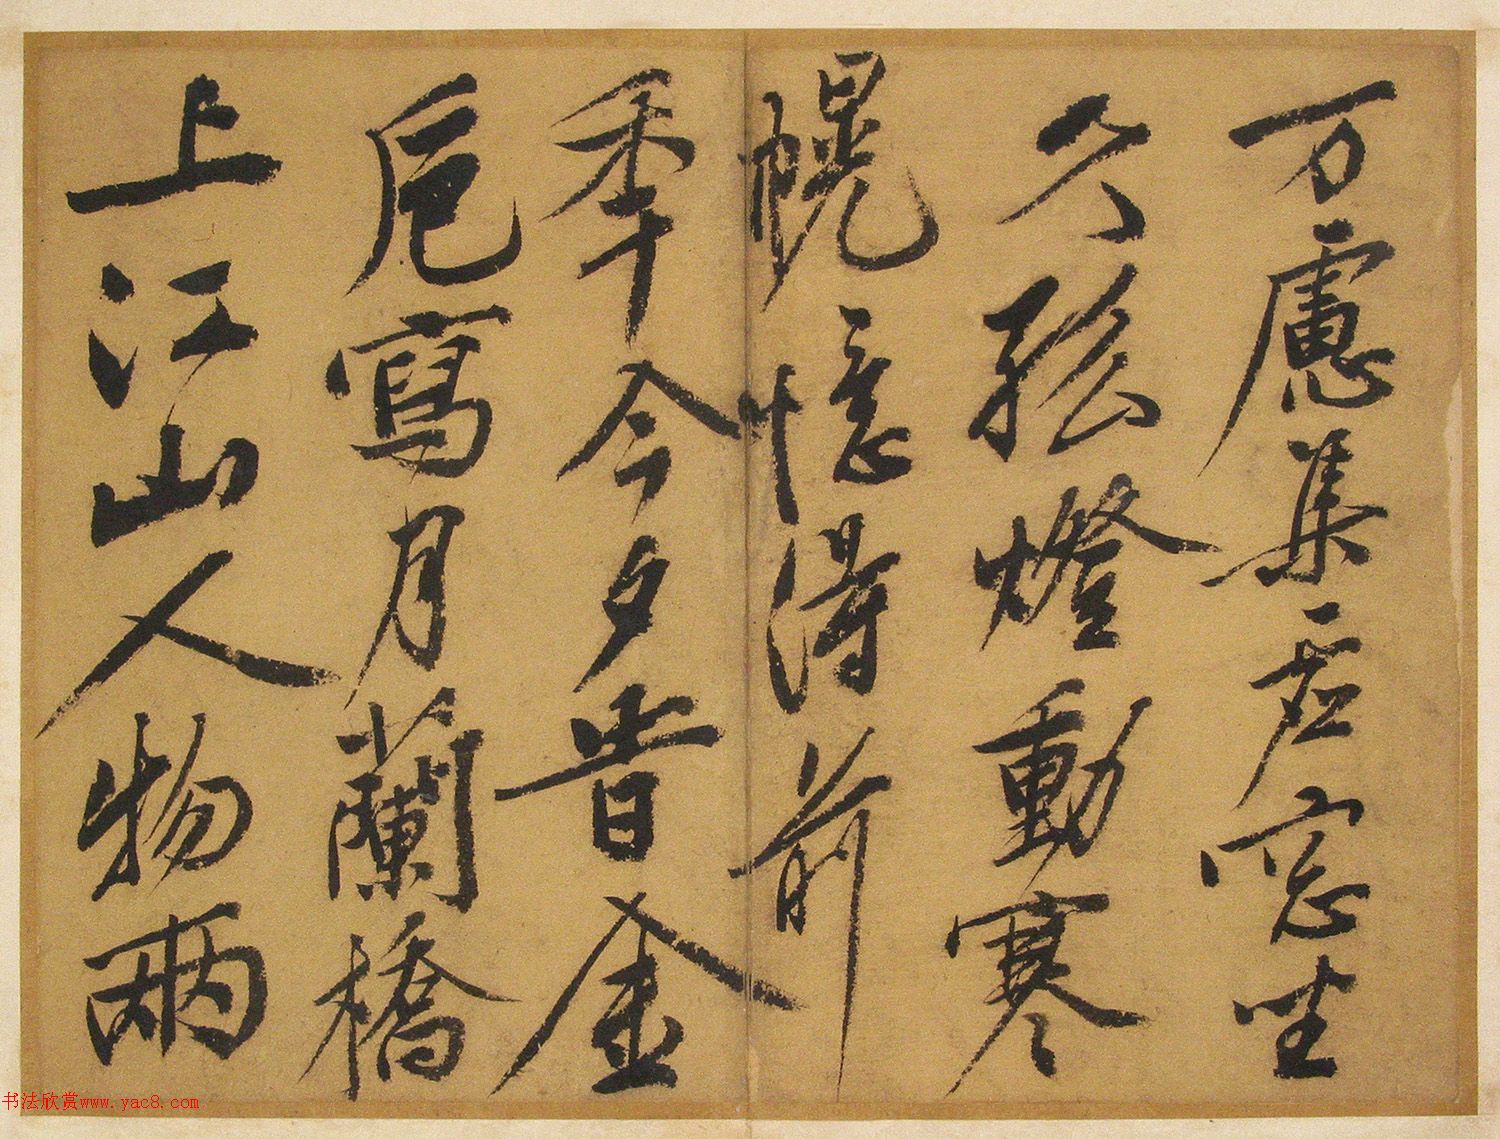 万慮集虚窓坐
久孤燈動寒
幌憶得前
秊今夕旹金
卮寫月蘭橋
上江山人物兩
书法欣赏www.yac8.com